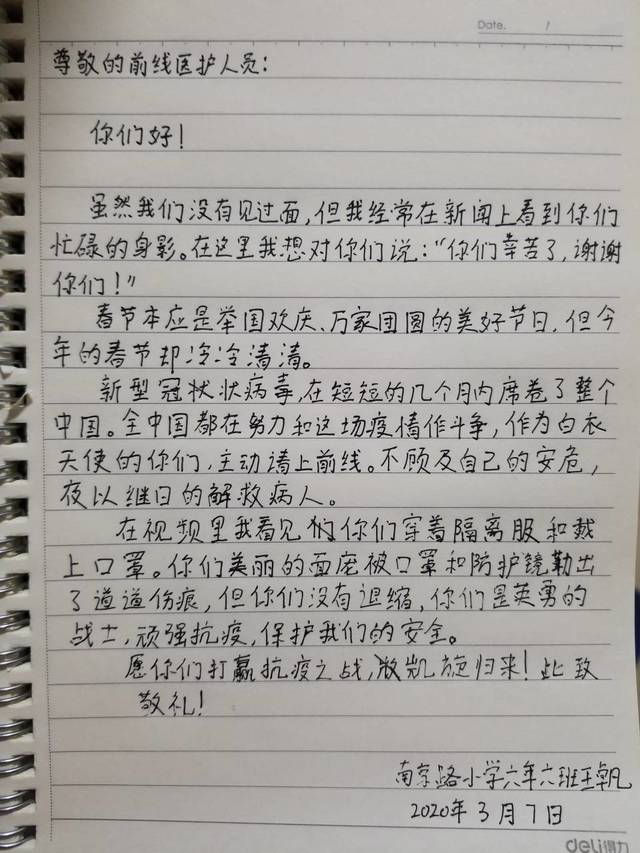 Date. /
尊敬的前线医护人员：
你们好！
虽然我们没有见过面，但我经常在新闻上看到你们
忙碌的身影。在这里我想对你们说：“你们辛苦了，谢谢
你们！”
春节本应是举国欢庆、万家团圆的美好节日，但今
年的春节却冷冷清清。
新型冠状状病毒，在短短的几个月内席卷了整个
中国。全中国都在努力和这场疫情作斗争，作为白衣
天使的你们，主动请上前线。不顾及自己的安危，
夜以继日的解救病人。
在视频里我看见 你们穿着隔离服和戴
上口罩。你们美丽的面庞被口罩和防护镜勒出
了道道伤痕，但你们没有退缩，你们是英勇的
战士，顽强抗疫，保护我们的安全。
愿你们打赢抗疫之战， 凯旋归来！此致
敬礼！
南京路小学六年六班王卓凡
2020年3月7日
deli得力